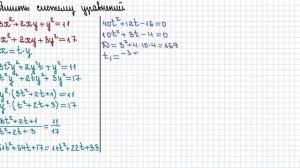 решить систему уравнений
3x²+2xy+y²=11
x²+2xy+3y²=17
x=t·y
3t²y²+2y²t+y²=11
t²y²+2ty²+3y²=17
y²·(3t²+2t+1)=11
y²·(t²+2t+3)=17
3t²+2t+1 / t²+2t+3 = 11/17
51t²+34t+17=11t²+22t+33
40t²+12t-16=0
10t²+3t-4=0
D=3²+4·10·4=169
t₁=-3+